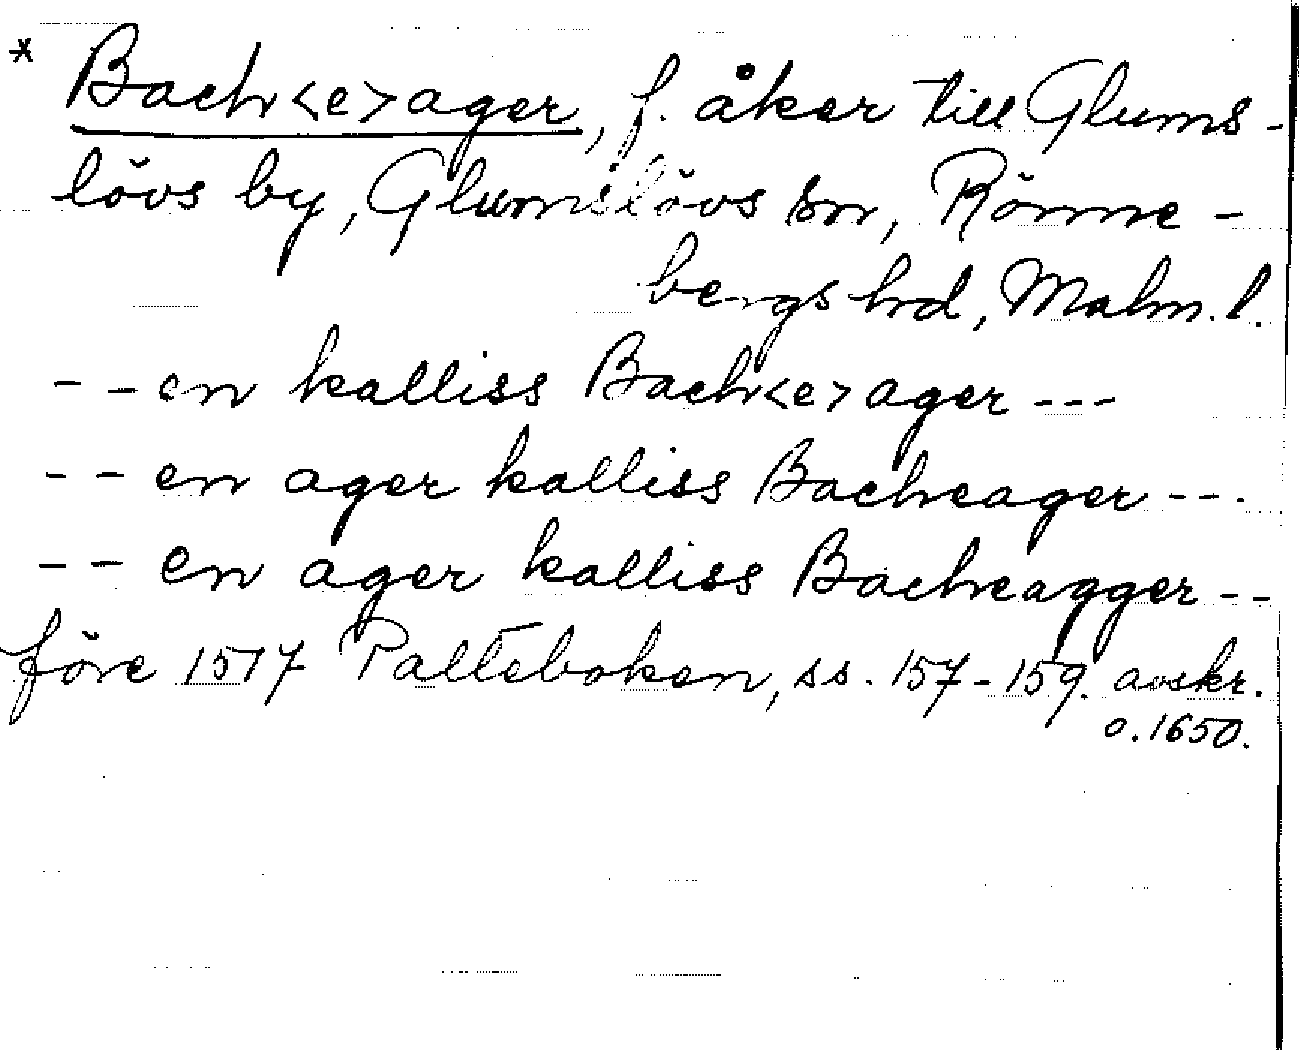 * Bach<e>ager, f. åker till Glums-
lövs by, Glumslövs sn, Rönne-
bergs hd, Malm. l.
- - en kalliss Bach<e>ager ---
- - en ager kalliss Bacheager ---
- - en ager kalliss Bacheagger --
före 1517 Palteboken, ss. 157-159. avskr.
o. 1650.